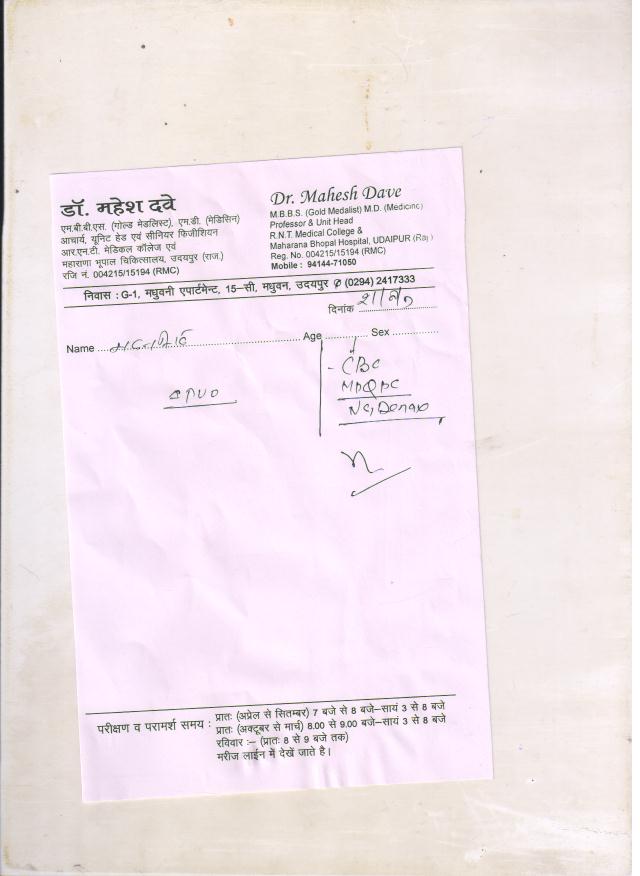 डॉ. महेश दवे
एम.बी.बी.एस. (गोल्ड मेडलिस्ट), एम.डी. (मेडिसिन)
आचार्य, यूनिट हेड एवं सीनियर फिजीशियन
आर.एन.टी. मेडिकल कॉलेज एवं
महाराणा भूपाल चिकित्सालय, उदयपुर (राज.)
रजि नं. 004215/15194 (RMC)
Dr. Mahesh Dave
M.B.B.S. (Gold Medalist) M.D. (Medicine)
Professor & Unit Head
R.N.T. Medical College &
Maharana Bhopal Hospital, UDAIPUR (Raj)
Reg. No. 004215/15194 (RMC)
Mobile : 94144-71050
निवास : G-1, मधुवनी एपार्टमेन्ट, 15–सी, मधुवन, उदयपुर ✆ (0294) 2417333
दिनांक
Name Age Sex
CBC
परीक्षण व परामर्श समय : प्रातः (अप्रेल से सितम्बर) 7 बजे से 8 बजे–सायं 3 से 8 बजे
प्रातः (अक्टूबर से मार्च) 8.00 से 9.00 बजे–सायं 3 से 8 बजे
रविवार :– (प्रातः 8 से 9 बजे तक)
मरीज लाईन में देखें जाते है।